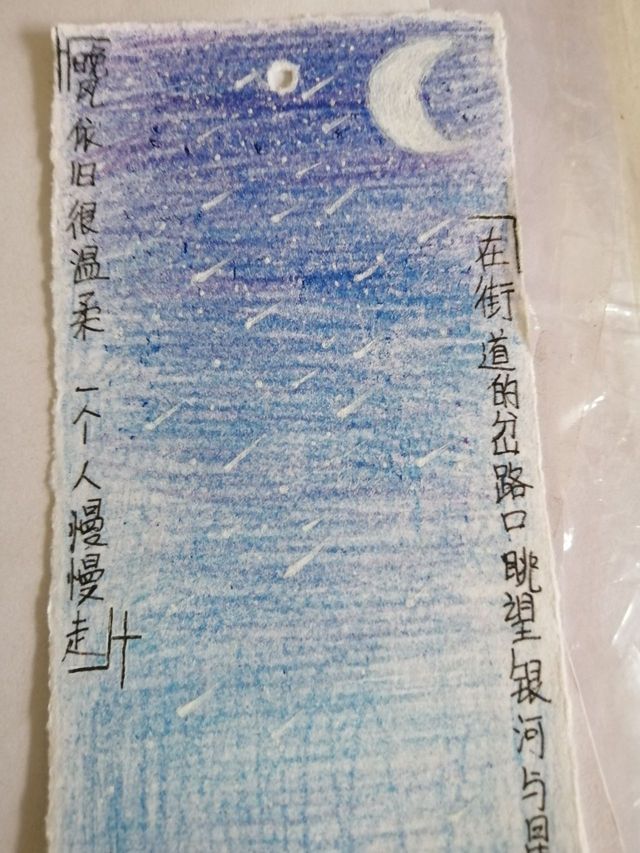 『晚风依旧很温柔 一个人慢慢走』
「在街道的岔路口眺望银河与星